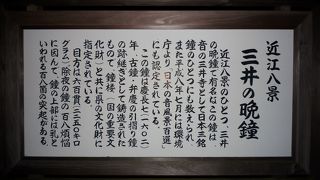 近江八景
三井の晩鐘
近江八景のひとつ、三井
の晩鐘で有名なこの鐘は
音の三井寺として日本三銘
鐘のひとつにも数えられ、
また平成八年七月には環境
庁より「日本の音風景百選」
にも認定されている。
この鐘は慶長七（一六〇二）
年、古鐘・弁慶の引摺り鐘
の跡継きとして鋳造された
もので、鐘楼（国の重要文
化財）と共に県の文化財に
指定されている。
目方は六百貫（二二五〇キロ
グラム）、除夜の鐘の百八煩悩
に因んで、鐘の上部には乳と
いわれる百八箇の突起がある